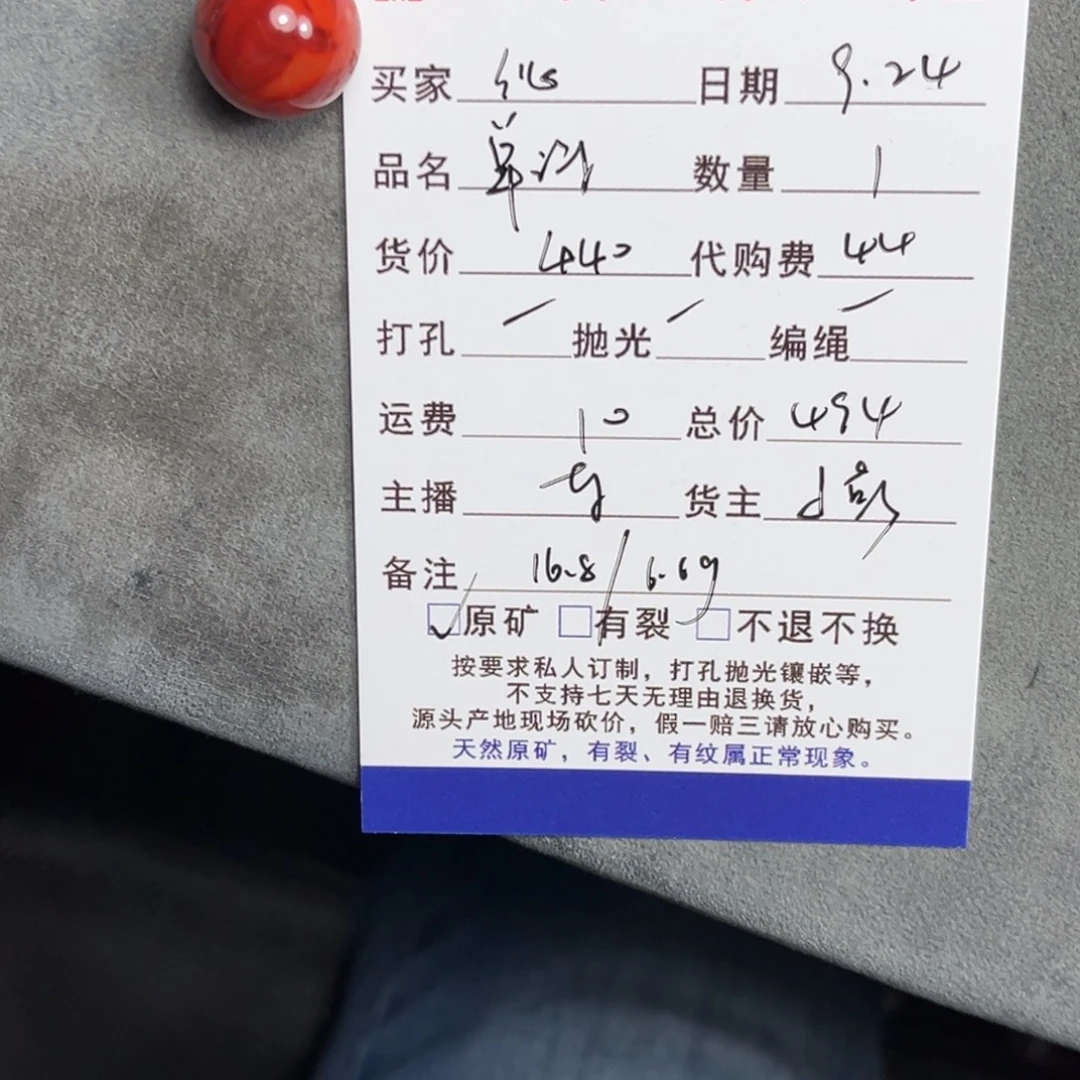 买家 日期 9.24
品名 单珠 数量 1
货价 440 代购费 44
打孔 / 抛光 / 编绳 /
运费 10 总价 494
主播 货主
备注 16.8/6.6g
☑原矿 □有裂 □不退不换
按要求私人订制，打孔抛光镶嵌等，
不支持七天无理由退换货，
源头产地现场砍价，假一赔三请放心购买。
天然原矿，有裂、有纹属正常现象。